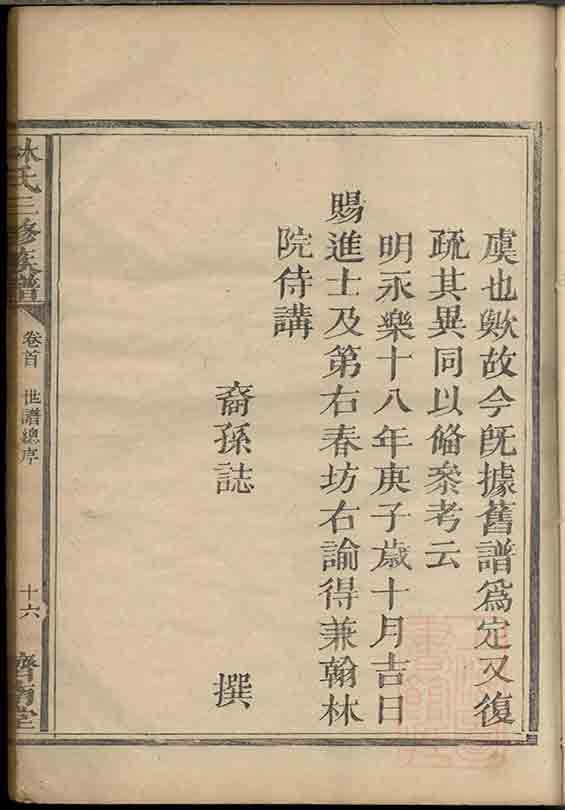 虞也歟故今旣據舊譜爲定又復
疏其異同以俻叅考云
明永樂十八年庚子歲十月吉日
賜進士及第右春坊右諭得兼翰林
院侍講
裔孫誌　撰
林氏三修族譜
卷首　世譜總序
十六
濟南堂